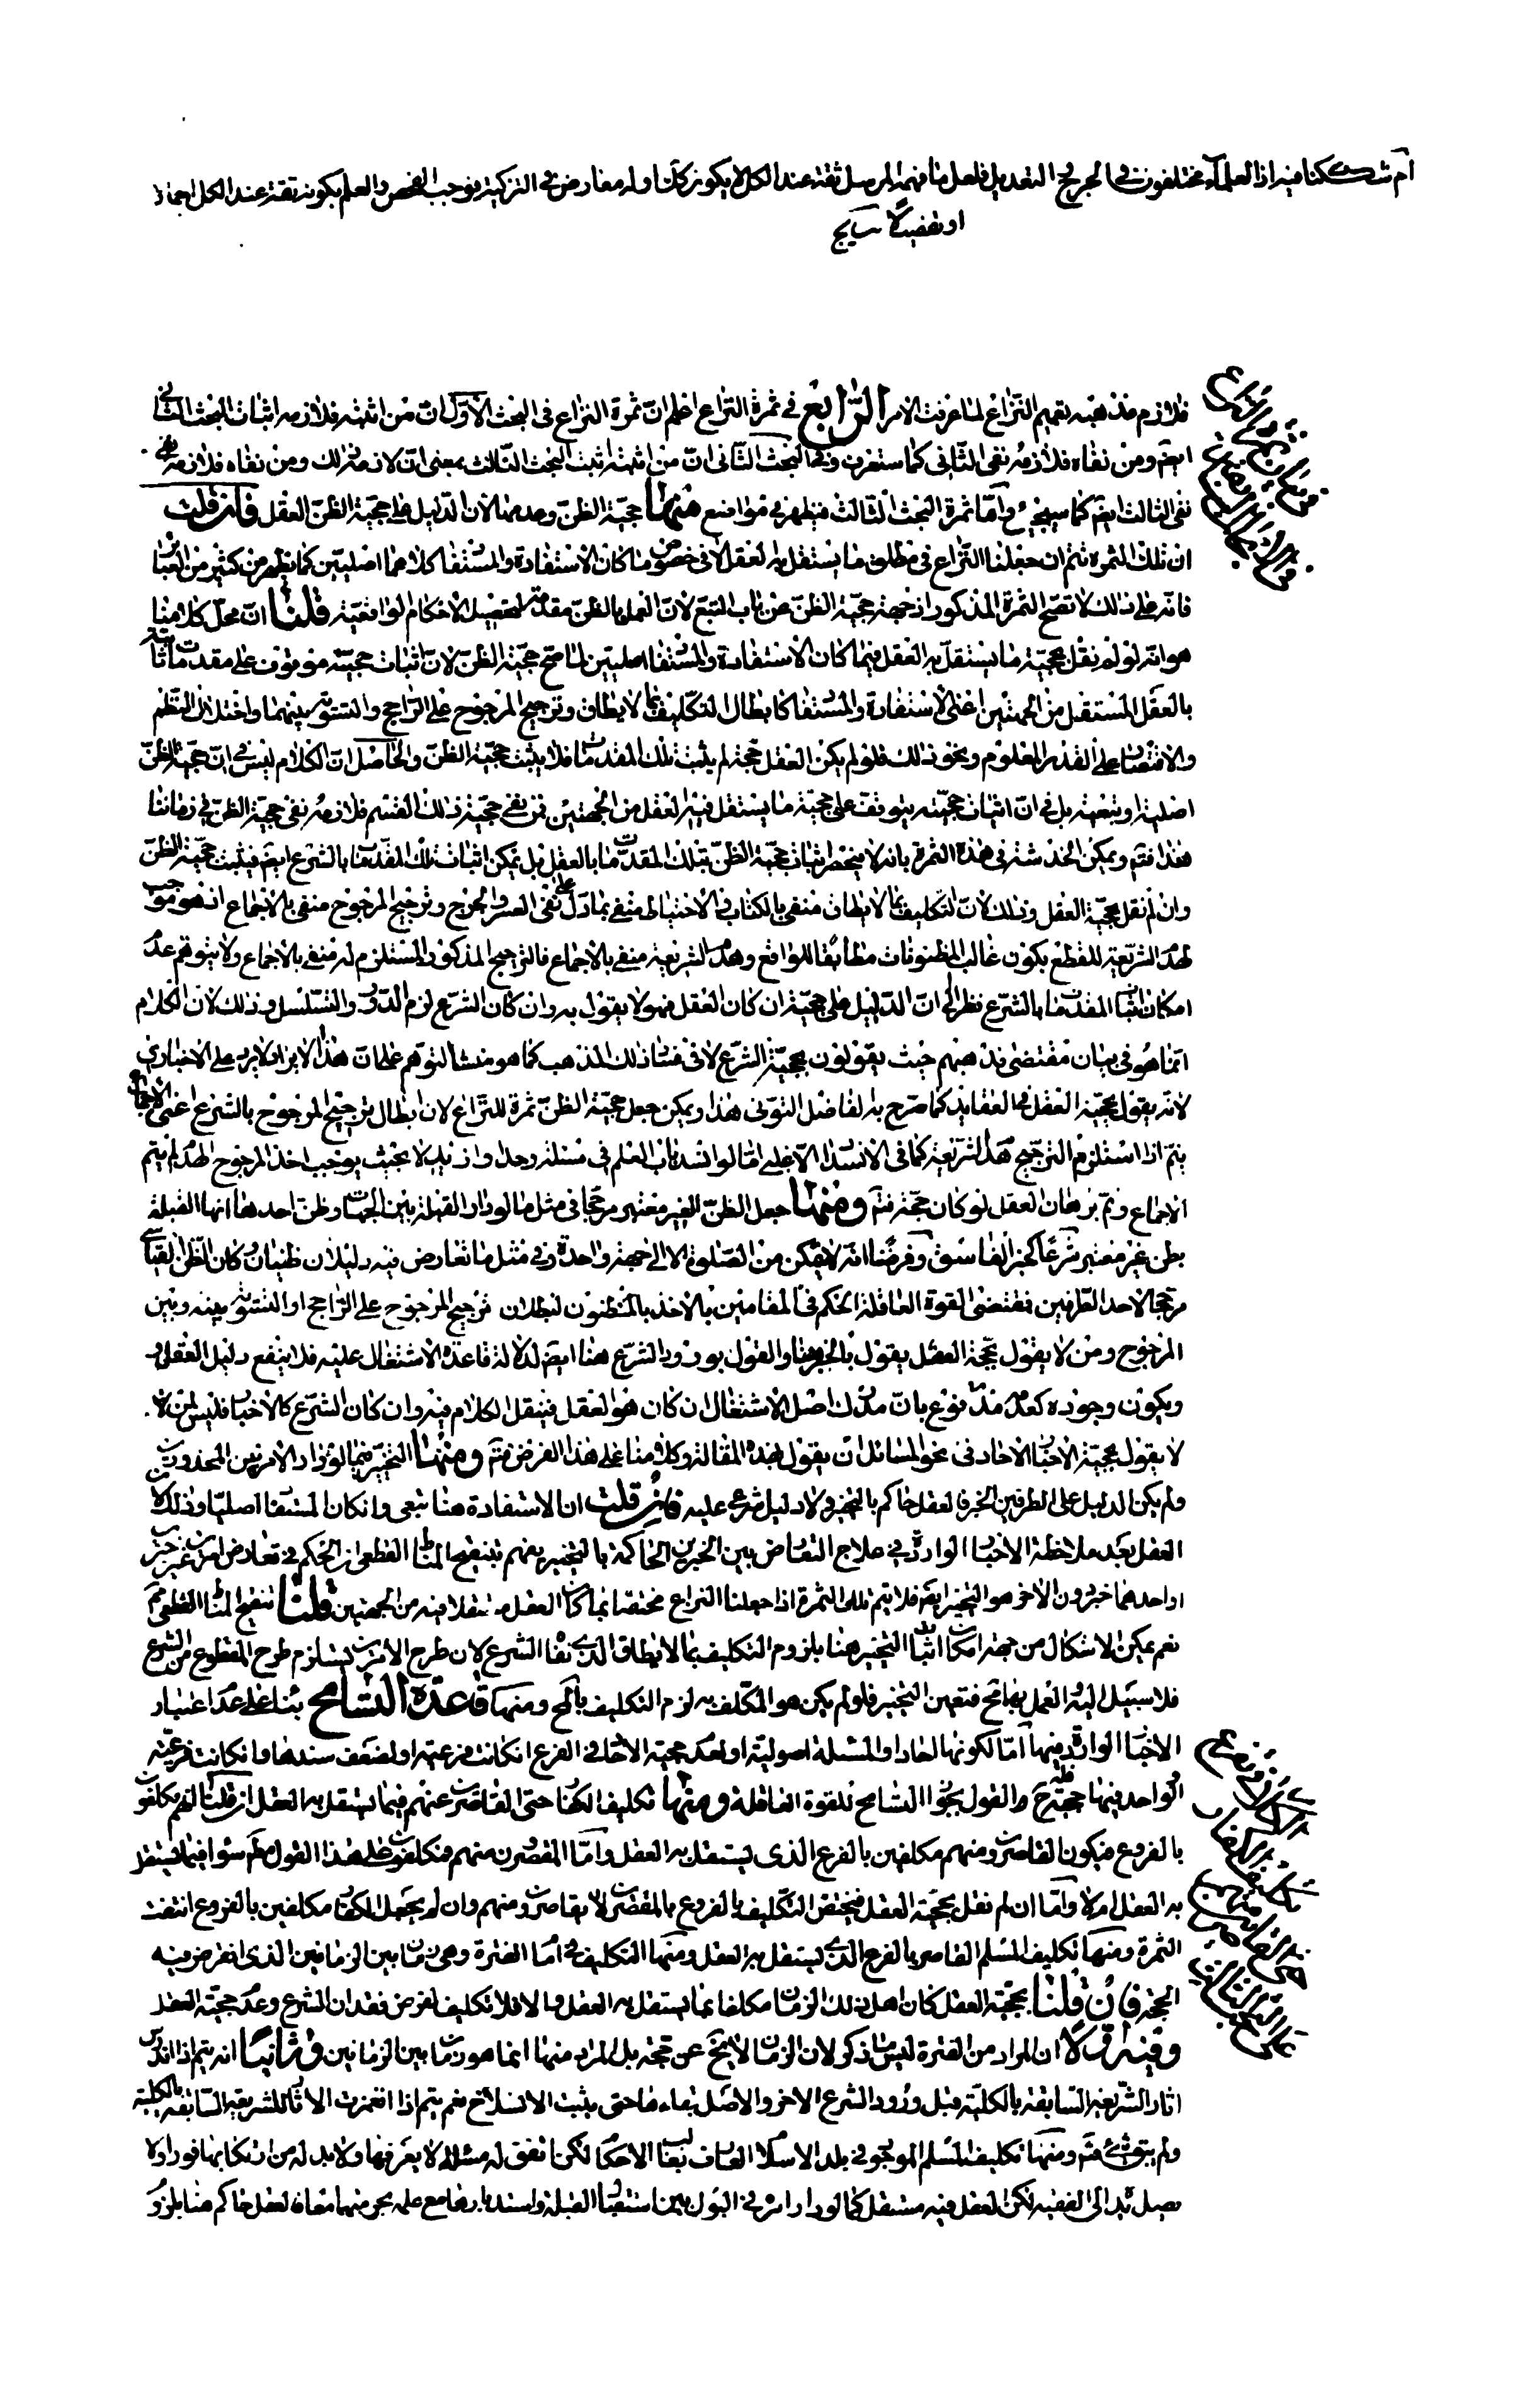 ام شككنا فيه اذ العلماء مختلفون في الجرح والتعديل فلعل ما فهمه المرسل ثقة عند الكل لا يكون كك اوله معارض في التزكية يوجب الفحص والعلم بكونه ثقة عند الكل اجمالا
او تفصيلا
فلازم مذهبه تعميم النزاع لما عرفت الامر الرابع في ثمرة النزاع اعلم ان ثمرة النزاع في البحث الاول ان من اثبته فلازمه اثبات البحث الثاني
ايضم ومن نفاه فلازمه نفى الثاني كما ستعرف وفي البحث الثاني ان من اثبته اثبت البحث الثالث بمعنى ان لازمه ذلك ومن نفاه فلازمه
نفى الثالث ايضم كما سيجيء واما ثمرة البحث الثالث فيظهر في مواضع منها حجية الظن وعدمها لان الدليل على حجية الظن العقل فان قلت
ان تلك الثمرة تتم ان جعلنا النزاع في مطلق ما يستقل به العقل لا في خصوص ما كان الاستفادة والمستفاد كلاهما اصليين كما يظهر من كثير من العبائر
فانه على ذلك لا تصح الثمرة المذكورة اذ جهة حجية الظن من باب التبع لان العمل بالظن مقدمة لتحصيل الاحكام الواقعية قلنا ان محل كلامنا
هو انه لو لم نقل بحجية ما يستقل به العقل فيما كان الاستفادة والمستفاد اصليين لما صح حجية الظن لان اثبات حجيته موقوف على مقدمات ثابتة
بالعقل المستقل من الجهتين اعنى الاستفادة والمستفاد كابطال التكليف بما لا يطاق وترجيح المرجوح على الراجح والتسوية بينهما واختلال النظم
والاقتصار على القدر المعلوم ونحو ذلك فلو لم يكن العقل حجة لم يثبت تلك المقدمات فلا يثبت حجية الظن والحاصل ان الكلام ليس في ان حجية الظن
اصلية او تبعية بل في ان اثبات حجيته يتوقف على حجية ما يستقل فيه العقل من الجهتين فمن نفى حجية ذلك القسم فلازمه نفى حجية الظن في زماننا
هذا فتم ويمكن الخدشة في هذه الثمرة بانه لا ينحصر اثبات حجية الظن بتلك المقدمات بالعقل بل يمكن اثبات تلك المقدمات بالشرع ايضم فيثبت حجية الظن
وان لم نقل بحجية العقل وذلك لان التكليف بما لا يطاق منفى بالكتاب والاحتياط منفى بما دل على نفى العسر والحرج وترجيح المرجوح منفى بالاجماع اذ هو موجب
لهدم الشريعة للقطع بكون غالب المظنونات مطابقا للواقع وهدم الشريعة منفى بالاجماع فالترجيح المذكور المستلزم له منفى بالاجماع ولا يتوهم عدم
امكان اثبات المقدمات بالشرع نظرا الى ان الدليل على حجيته ان كان العقل فهو لا يقول به وان كان الشرع لزم الدور والتسلسل وذلك لان الكلام
انما هو في بيان مقتضى مذهبهم حيث يقولون بحجية الشرع لا في فساد ذلك المذهب كما هو منشأ التوهم على ان هذا الايراد لا يرد على الاخباري
لانه يقول بحجية العقل في العقايد كما صرح به الفاضل التونى هذا ويمكن جعل حجية الظن ثمرة للنزاع لان ابطال ترجيح المرجوح بالشرع اعنى الاجماع
يتم اذا استلزم الترجيح هدم الشريعة كما في الانسداد الاغلبى اما لو انسد باب العلم في مسئلة وحدا وازيد لا بحيث يوجب اخذ المرجوح الهدم لم يتم
الاجماع وتم برهان العقل لو كان حجة فتم ومنها جعل الظن الغير معتبر مرجحا في مثل ما لو دار القبلة بين الجهات وظن احدها انها القبلة
بظن غير معتبر شرعا كخبر الفاسق وفرضنا انه لا يتمكن من الصلوة الا الى جهة واحدة وفي مثل ما تعارض فيه دليلان ظنيان وكان الظن القياسي
مرجحا لاحد الطرفين فمقتضى القوة العاقلة الحكم في المقامين بالاخذ بالمظنون لبطلان ترجيح المرجوح على الراجح او التسوية بينه وبين
المرجوح ومن لا يقول بحجية العقل يقول بالتخيير هنا والقول بورود الشرع هنا ايضم لدلالة قاعدة الاشتغال عليه فلا ينفع دليل العقل
ويكون وجوده كعدمه مدفوع بان مدرك اصل الاشتغال ان كان هو العقل فينقل الكلام فيه وان كان الشرع كالاخبار فليس لمن
لا يقول بحجية الاخبار الاحاد في نحو المسائل ان يقول بهذه المقالة وكلامنا على هذا الفرض فتم ومنها التخيير فيما لو دار الامر بين المحذورين
ولم يكن الدليل على الطرفين الخبر فالعقل حاكم بالتخيير ولا دليل شرعى عليه فان قلت ان الاستفادة هنا تبعى وان كان المستفاد اصليا وذلك لان
العقل بعد ملاحظة الاخبار الواردة في علاج التعارض بين الخبرين الحاكمة بالتخيير يفهم بتنقيح المناط القطعى ان الحكم في تعارض امرين غير خبرين
او احدهما خبر دون الاخر هو التخيير ايضم فلا يتم تلك الثمرة اذا جعلنا النزاع مختصا بما كان العقل مستقلا فيه من الجهتين قلنا تنقيح المناط القطعى
نعم يمكن الاشكال من جهة امكان اثبات التخيير هنا بلزوم التكليف بما لا يطاق الذى نفاه الشرع لان طرح الامرين يستلزم طرح المقطوع من الشرع
فلا سبيل اليه والعمل بهما مح فتعين التخيير فلو لم يكن هو المكلف به لزم التكليف بالمح ومنها قاعدة التسامح بناء على عدم اعتبار
الاخبار الواردة فيها اما لكونها احادا والمسئلة اصولية او لعدم حجية الاحاد في الفرع ان كانت فرعية او لضعف سندها وان كانت فرعية
والواحد فيها حجة والقول بجواز التسامح للقوة العاقلة ومنها تكليف الكفار حتى القاصرين منهم فيما يستقل به العقل ان قلنا انهم مكلفون
بالفروع فيكون القاصرون منهم مكلفين بالفرع الذى يستقل به العقل واما المقصرون منهم فمكلفون على هذا القول مطم سواء فيما يستقل
به العقل ام لا واما ان لم نقل بحجية العقل فيختص التكليف بالفروع بالمقصرين لا بقاصرين منهم وان لم يجعل الكفار مكلفين بالفروع انتفت
الثمرة ومنها تكليف المسلم القاصر بالفرع الذى يستقل به العقل ومنها التكليف في زمان الفترة وهى زمان ما بين الزمانين الذى انقرض فيه
الحجة فان قلنا بحجية العقل كان اهل ذلك الزمان مكلفا بما يستقل به العقل والا فلا تكليف لفرض فقدان الشرع وعدم حجية العقل
وفيه اولا ان المراد من الفترة ليس ما ذكر لان الزمان لا يخ عن حجة بل المراد منها انما هو زمان ما بين الزمانين وثانيا انه يتم اذا اندرس
اثار الشريعة السابقة بالكلية قبل ورود الشرع الاخر والاصل بقاءها حتى يثبت الانسلاخ نعم يتم اذا انعدمت الاثار للشريعة السابقة بالكلية
ولم يبق شيء فتم ومنها تكليف المسلم الموجود في بلد الاسلام العارف بغالب الاحكام لكن اتفق له مسئلة لا يعرفها ولا بد له من ارتكابها فورا ولا
يصل يده الى الفقيه لكن العقل فيه مستقل كما لو دار امره في البول بين استقبال القبلة واستدبارها مع علمه بحرمتها معا فان العقل حاكم هنا بلزوم